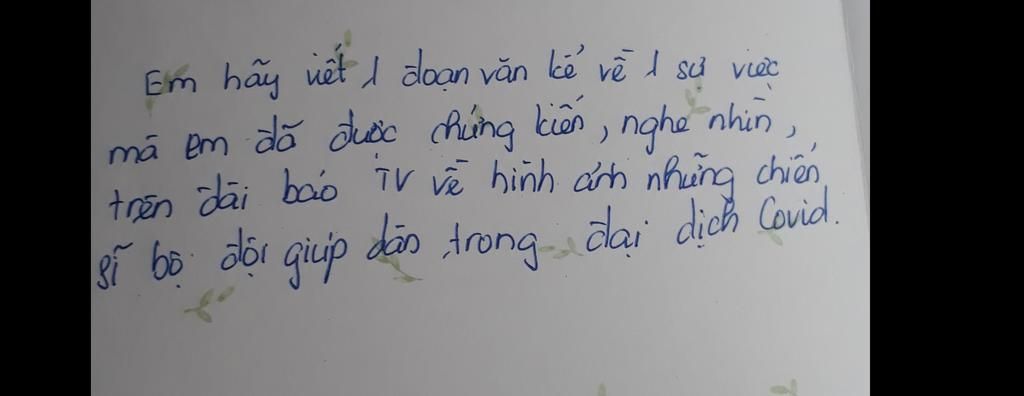 Em hãy viết 1 đoạn văn kể về 1 sự việc
mà em đã được chứng kiến, nghe nhìn,
trên đài báo TV về hình ảnh những chiến
sĩ bộ đội giúp dân trong đại dịch Covid.